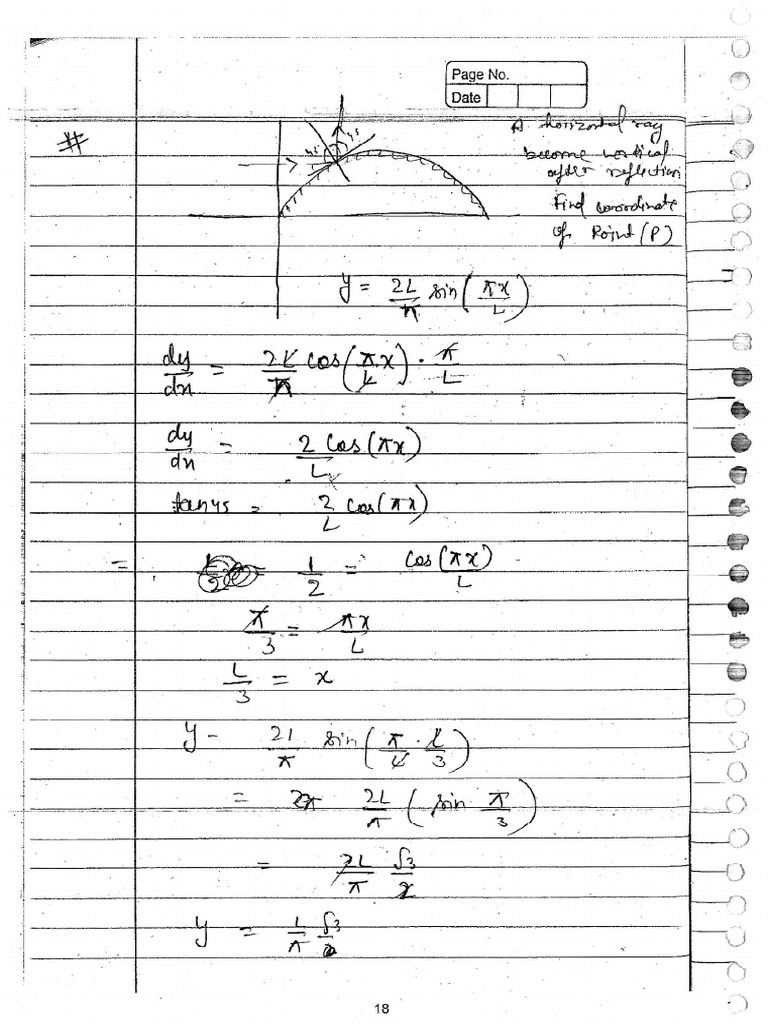 Page No.
Date
#
A horizontal ray
become vertical
after reflection
Find coordinate
of Point (P)
45 45
y = 2L/π sin(πx/L)
dy/dx = 2L/π cos(πx/L) · π/L
dy/dx = 2/L cos(πx)
tan45 = 2/L cos(πx)
= 1/2 = cos(πx/L)
π/3 = πx/L
L/3 = x
y - 2L/π sin(π/L · L/3)
= 2L/π (sin π/3)
= 2L/π √3/2
y = L/π √3
18